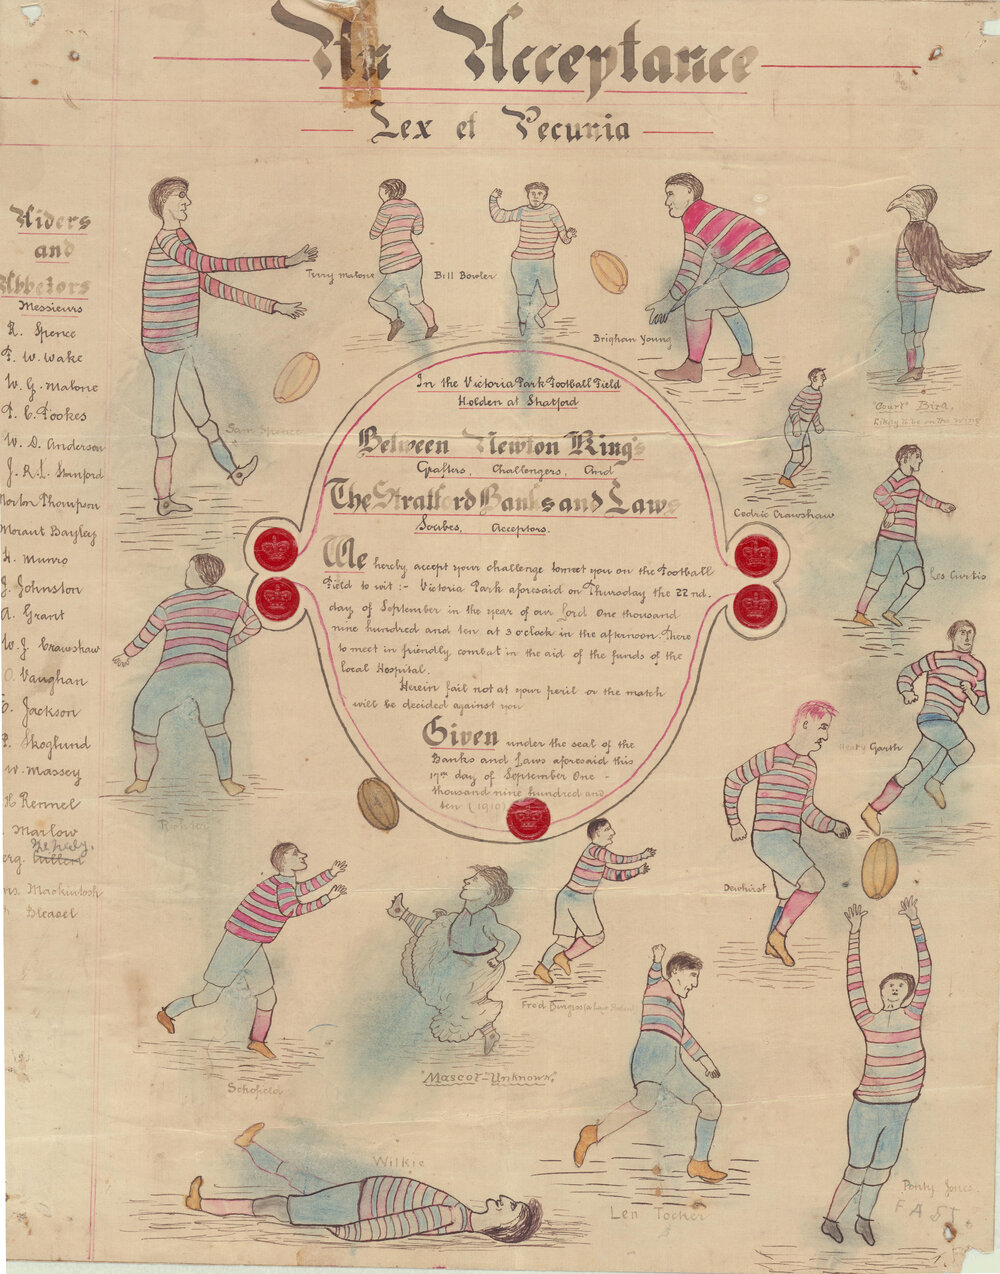 An Acceptance
Lex et Pecunia
Aiders
and
Abbetors
Messieurs
R. Spence
F. W. Wake
W. G. Malone
P. C. Fookes
W. D. Anderson
J. R. L. Stanford
Norton Thompson
Mount Bayley
H. Munro
J. Johnston
A. Grant
W. J. Crawshaw
O. Vaughan
C. Jackson
P. Skoglund
W. Massey
H Rennel
Marlow
Mackintosh
Bleasel
Sam Spence
Terry Malone
Bill Bowler
Brighan Young
"Court" Bird.
Likely to be on the wing
Cedric Crawshaw
Les Curtis
Henry Garth
Dewhirst
In the Victoria Park Football Field
Holden at Stratford
Between Newton King's
Grafters, Challengers, And
The Stratford Banks and Laws
Soubes, Acceptors.
We hereby accept your challenge to meet you on the Football
Field to wit :- Victoria Park aforesaid on Thursday the 22nd.
day of September in the year of our Lord One thousand
nine hundred and ten at 3 o'clock in the afternoon. There
to meet in friendly combat in the aid of the funds of the
local Hospital.
Herein fail not at your peril or the match
will be decided against you
Given under the seal of the
Banks and Laws aforesaid this
17th day of September One -
thousand nine hundred and
ten (1910)
Schofield
"Mascot-Unknown."
Fred Burgess
Wilkie
Len Tocker
Ponty Jones.
FAST